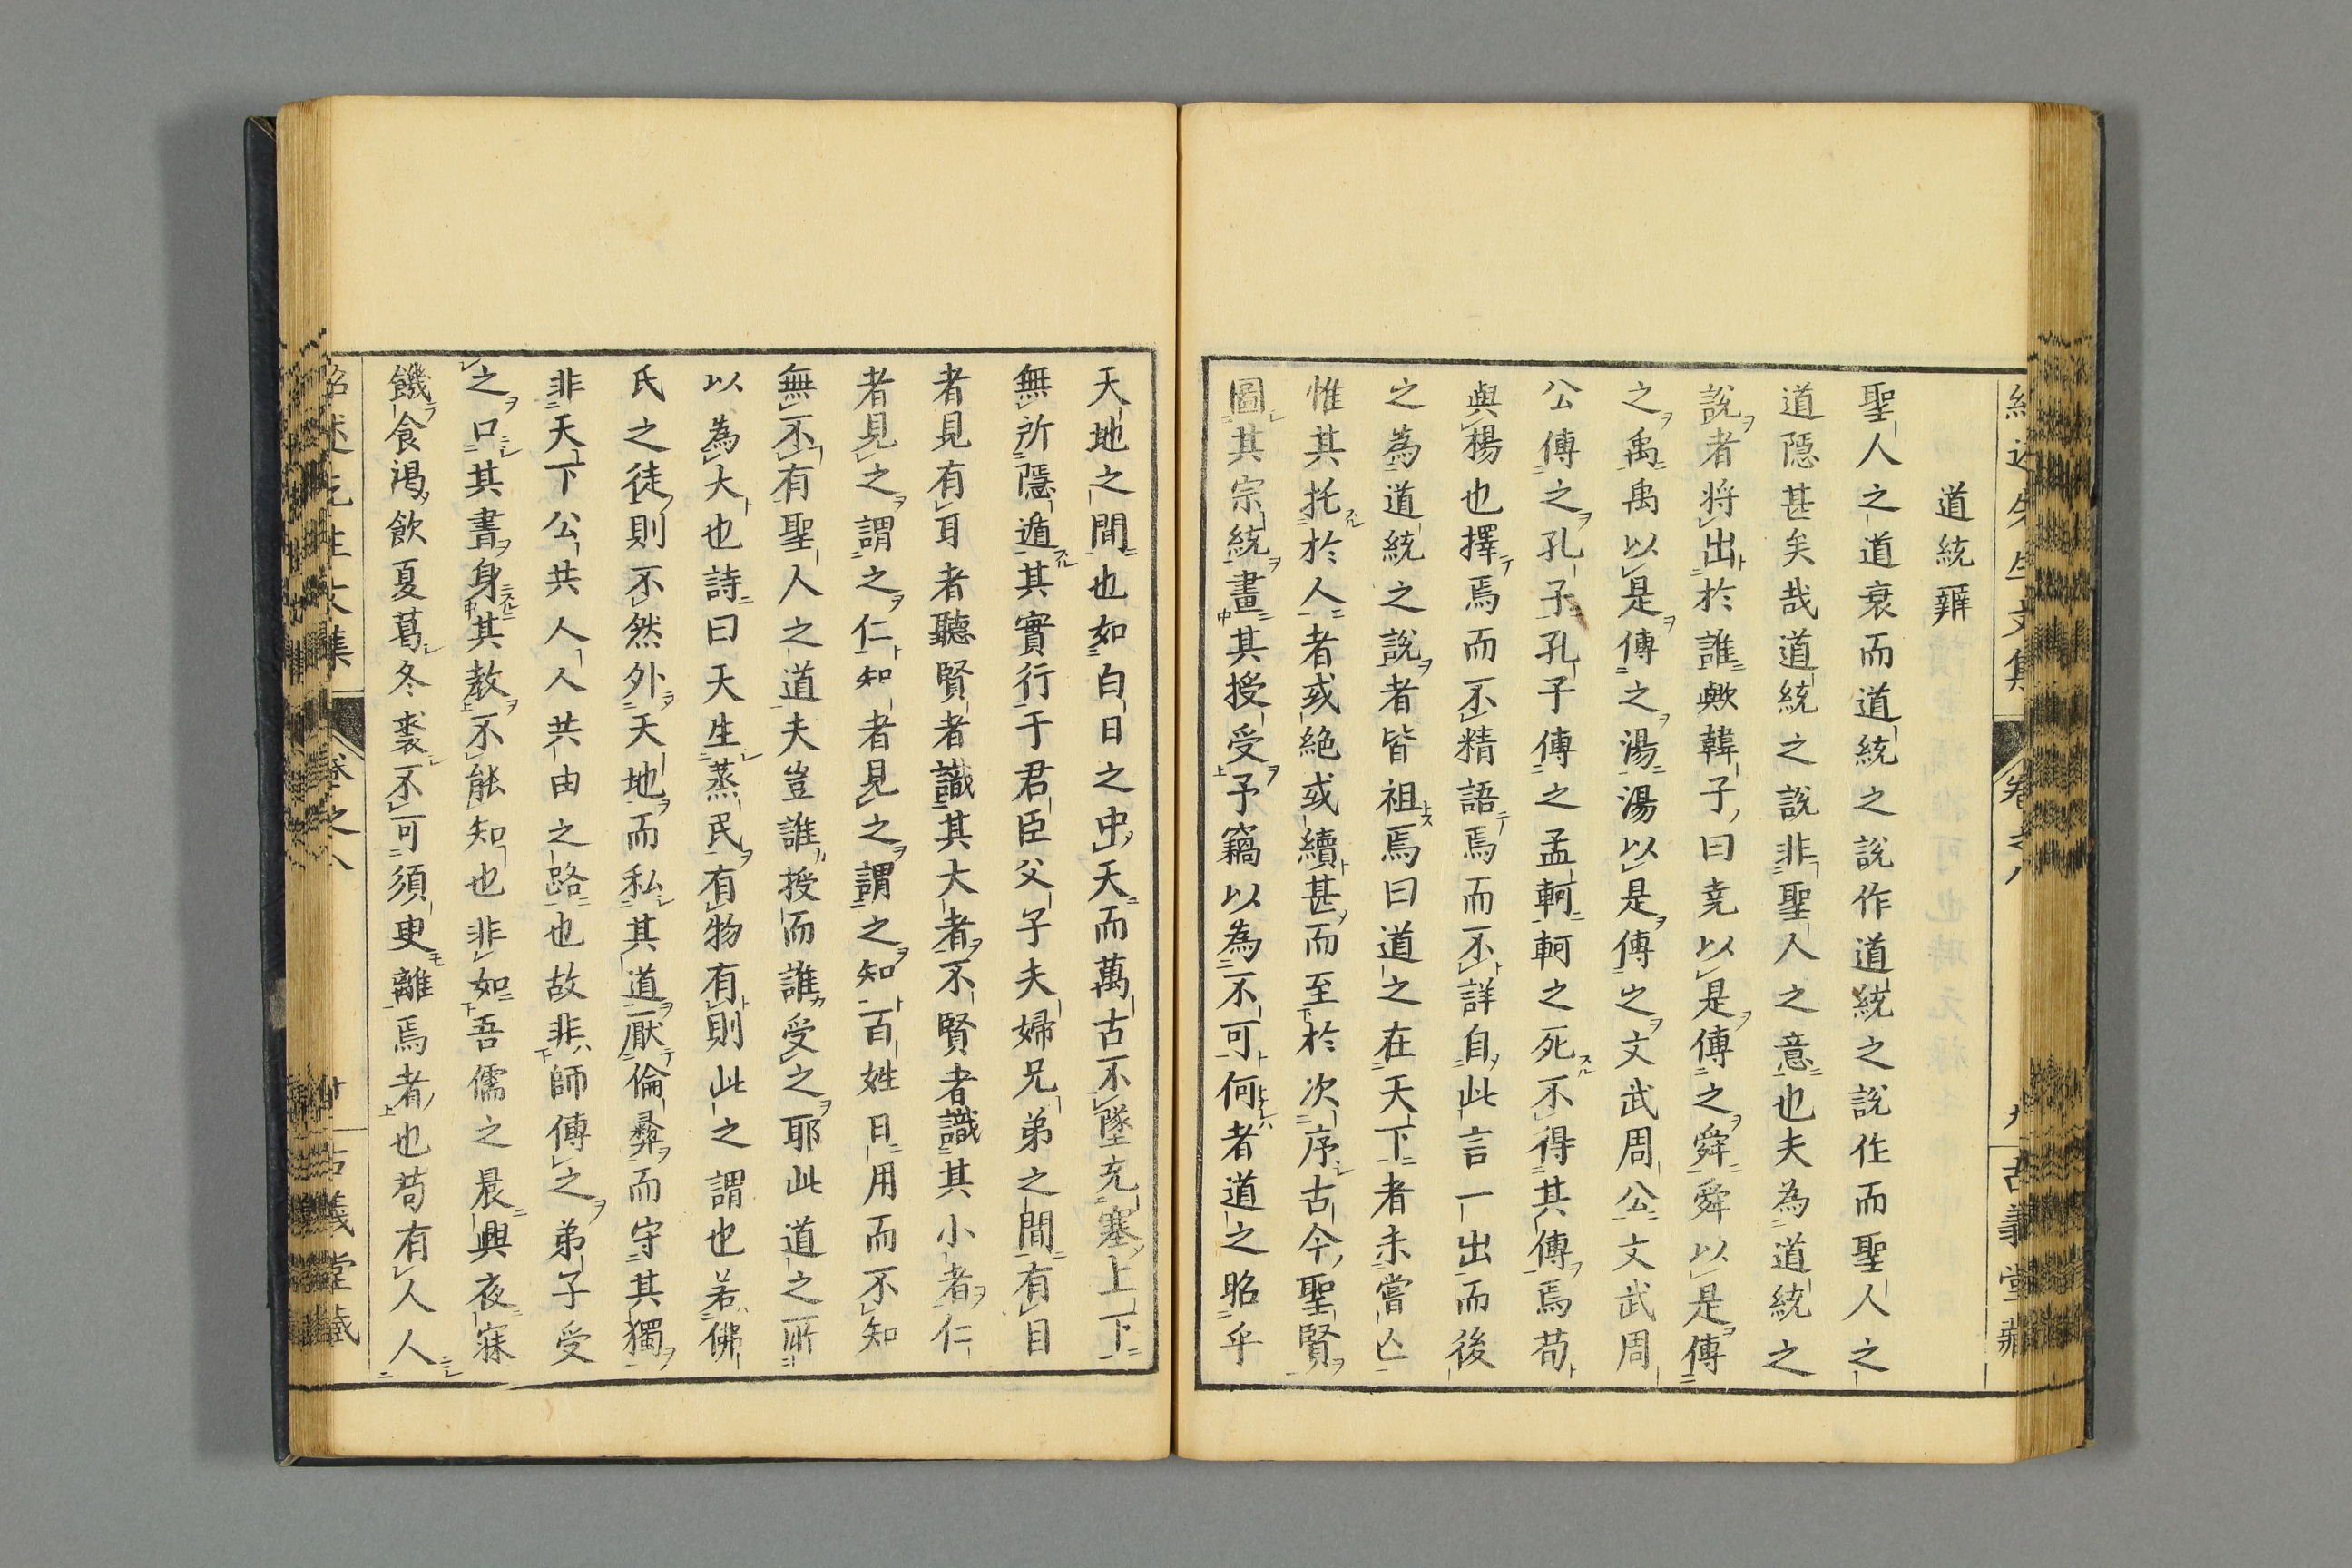 道統辨
聖人之道衰而道統之說作道統之說作而聖人之
道隱甚矣哉道統之說非聖人之意也夫為道統之
說者将出於誰歟韓子曰堯以是傳之舜舜以是傳
之禹禹以是傳之湯湯以是傳之文武周公文武周
公傳之孔子孔子傳之孟軻軻之死不得其傳焉荀
與楊也擇焉而不精語焉而不詳自此言一出而後
之為道統之說者皆祖焉曰道之在天下者未嘗亡
惟其托於人者或絶或續甚而至於次序古今聖賢
圖其宗統畫其授受予竊以為不可何者道之昭乎
天地之間也如白日之中天而萬古不墜充塞上下
無所隱遁其實行于君臣父子夫婦兄弟之間有目
者見有耳者聽賢者識其大者不賢者識其小者仁
者見之謂之仁知者見之謂之知百姓日用而不知
無不有聖人之道夫豈誰授而誰受之耶此道之所
以為大也詩曰天生蒸民有物有則此之謂也若佛
氏之徒則不然外天地而私其道厭倫彜而守其獨
非天下公共人人共由之路也故非師傳之弟子受
之口其書身其教不能知也非如吾儒之晨興夜寐
饑食渴飲夏葛冬裘不可須臾離焉者也苟有人人
卷之八
古義堂藏